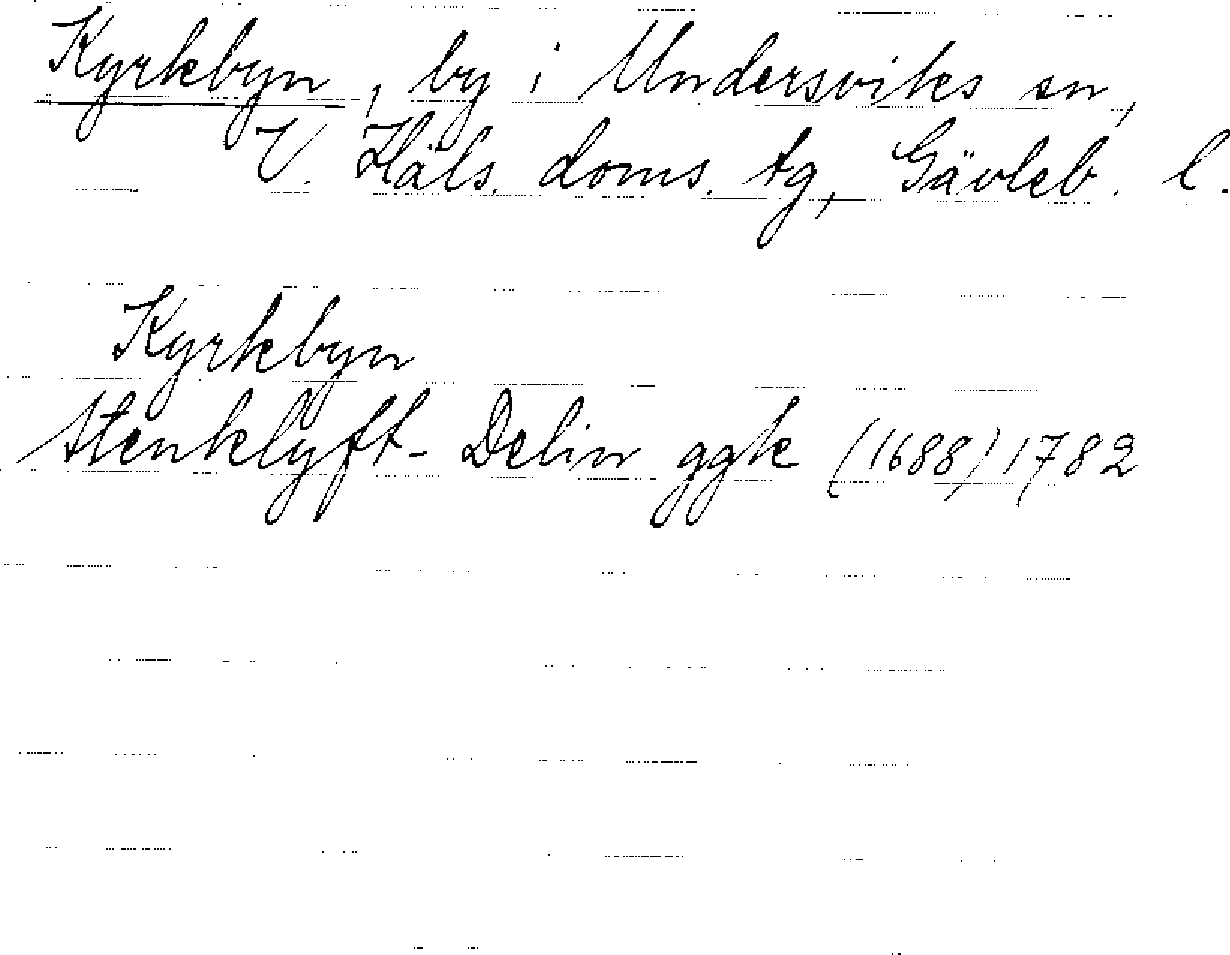 Kyrkbyn, by i Undersviks sn,
V. Häls. doms. tg, Gävleb. l.
Kyrkbyn
Stenklyft-Delin ggk (1688) 1782